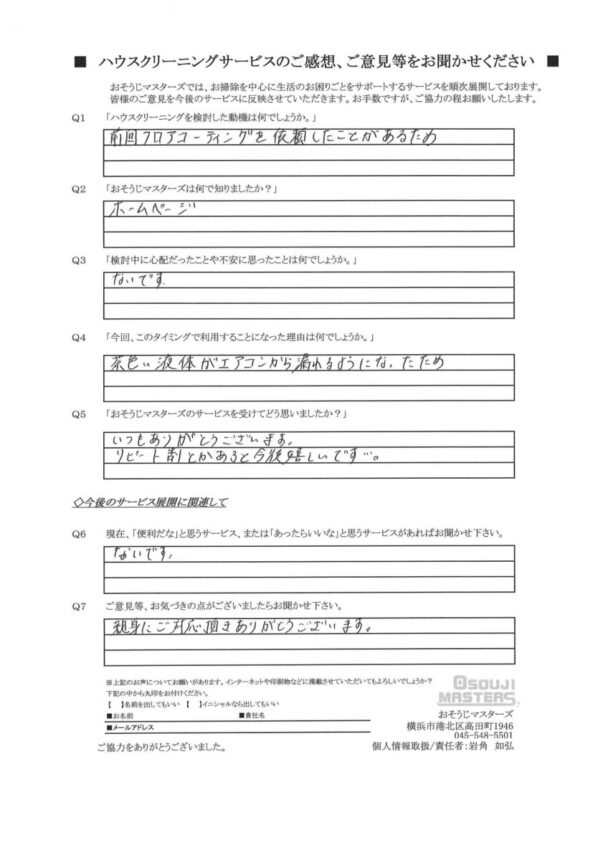 ■ ハウスクリーニングサービスのご感想、ご意見等をお聞かせください ■
おそうじマスターズでは、お掃除を中心に生活のお困りごとをサポートするサービスを順次展開しております。
皆様のご意見を今後のサービスに反映させていただきます。お手数ですが、ご協力の程お願いしたします。
Q1 「ハウスクリーニングを検討した動機は何でしょうか。」
前回フロアコーティングを依頼したことがあるため
Q2 「おそうじマスターズは何で知りましたか？」
ホームページ
Q3 「検討中に心配だったことや不安に思ったことは何でしょうか。」
ないです.
Q4 「今回、このタイミングで利用することになった理由は何でしょうか。」
茶色い液体がエアコンから漏れるようになったため
Q5 「おそうじマスターズのサービスを受けてどう思いましたか？」
いつもありがとうございます。
リピート割とかあると今後嬉しいです…。
◇今後のサービス展開に関連して
Q6 現在、「便利だな」と思うサービス、または「あったらいいな」と思うサービスがあればお聞かせ下さい。
ないです。
Q7 ご意見等、お気づきの点がございましたらお聞かせ下さい。
親身にご対応頂きありがとうございます。
※上記のお声についてお願いがあります。インターネットや印刷物などに掲載させていただいてもよろしいでしょうか？
下記の中から丸印をお付けください。
【 】名前を出してもいい 【 】イニシャルなら出してもいい
■お名前 ■貴社名
■メールアドレス
ご協力をありがとうございました。
OSOUJI
MASTERS
おそうじマスターズ
横浜市港北区高田町1946
045-548-5501
個人情報取扱/責任者：岩角 如弘